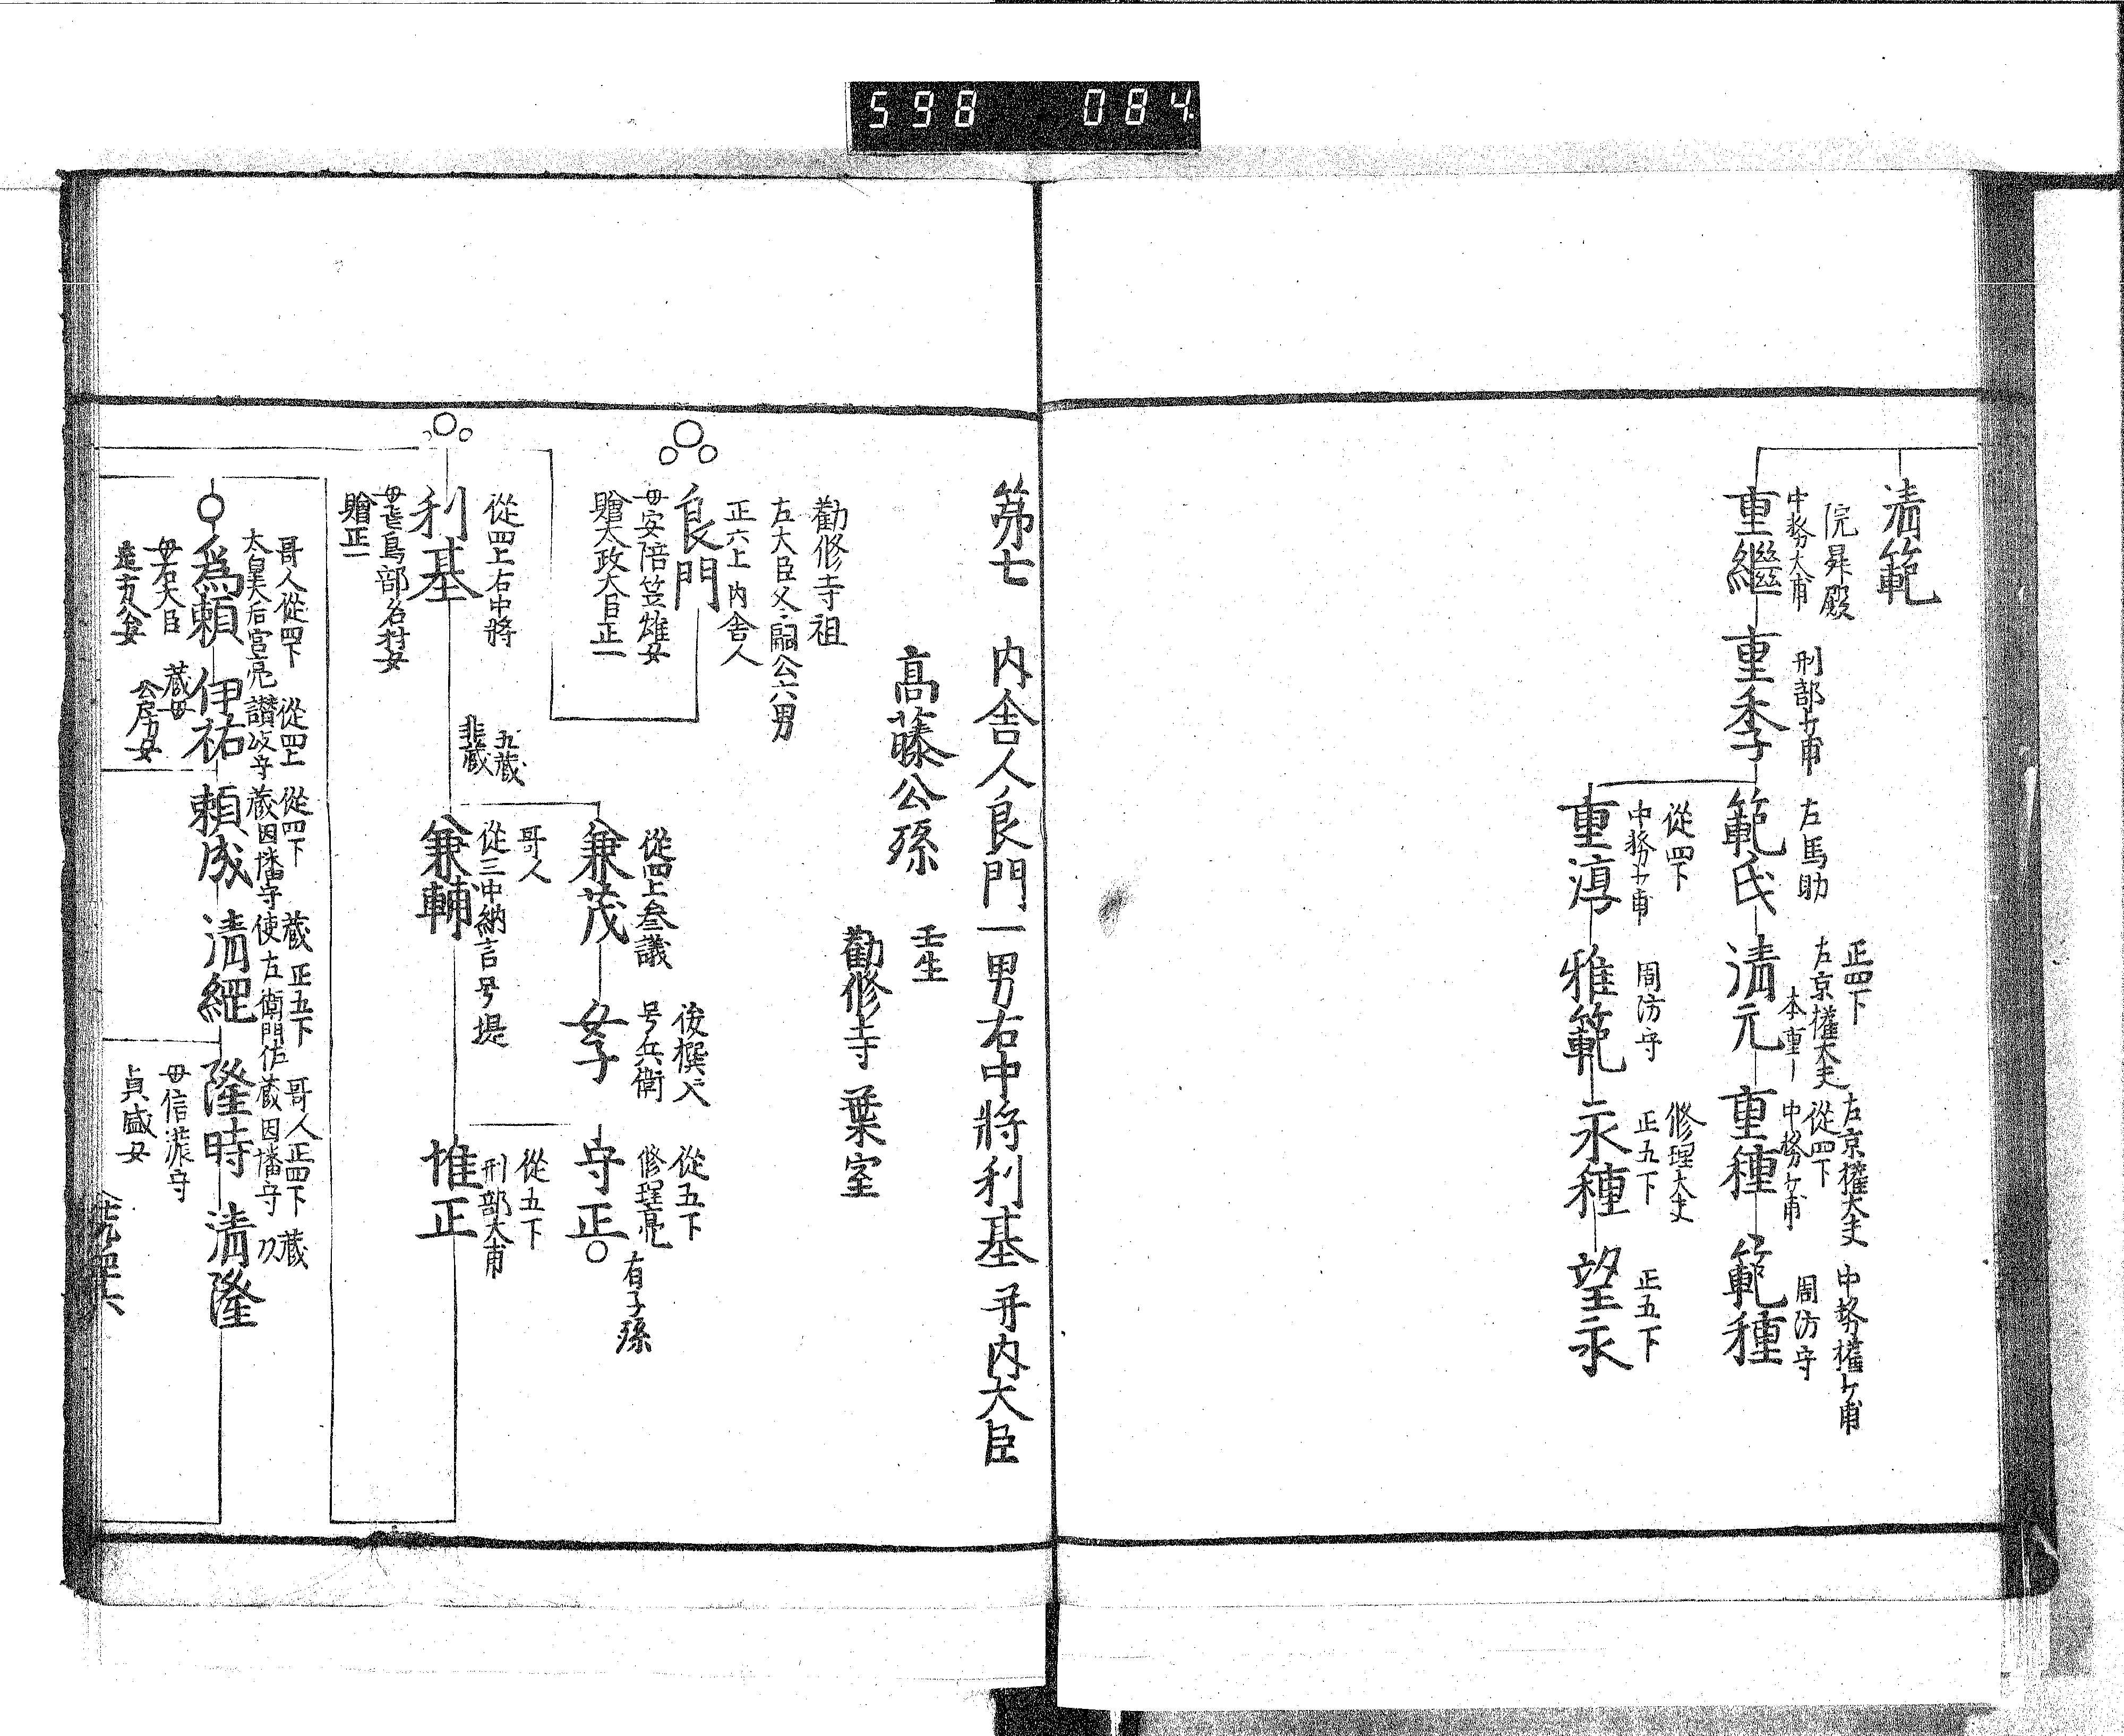 598 084
清範
院昇殿
中務大甫
重継
刑部少甫
重季
左馬助
範氏
正四下
左京権大夫
本重ー
清元
左京権大夫
従四下
中務少甫
重種
中務権少甫
周防守
範種
従四下
中務少甫
重淳
周防守
雅範
修理大夫
正五下
永種
正五下
望永
第七　内舎人良門一男右中将利基并内大臣
高藤公孫　壬生
勧修寺　葉室
勧修寺祖
左大臣冬嗣公六男
正六上　内舎人
良門
母安陪笠雄女
贈太政大臣正一
従四上右中将
利基
母
鳥部名村女
贈正一
五蔵
非蔵
従四上参議
兼茂
後撰人
号兵衛
女子
従五下
修理亮
守正
有子孫
哥人
従三中納言号堤
兼輔
従五下
刑部大甫
惟正
哥人従四下
太皇大后宮亮
為頼
母右大臣
定方公女
従四上
讃岐守
伊祐
蔵母
公房女
従四下　蔵
因幡守
頼成
蔵　正五下
使　左衛門佐
清綱
哥人正四下　蔵
蔵因幡守
隆時
母信濃守
貞盛女
清隆